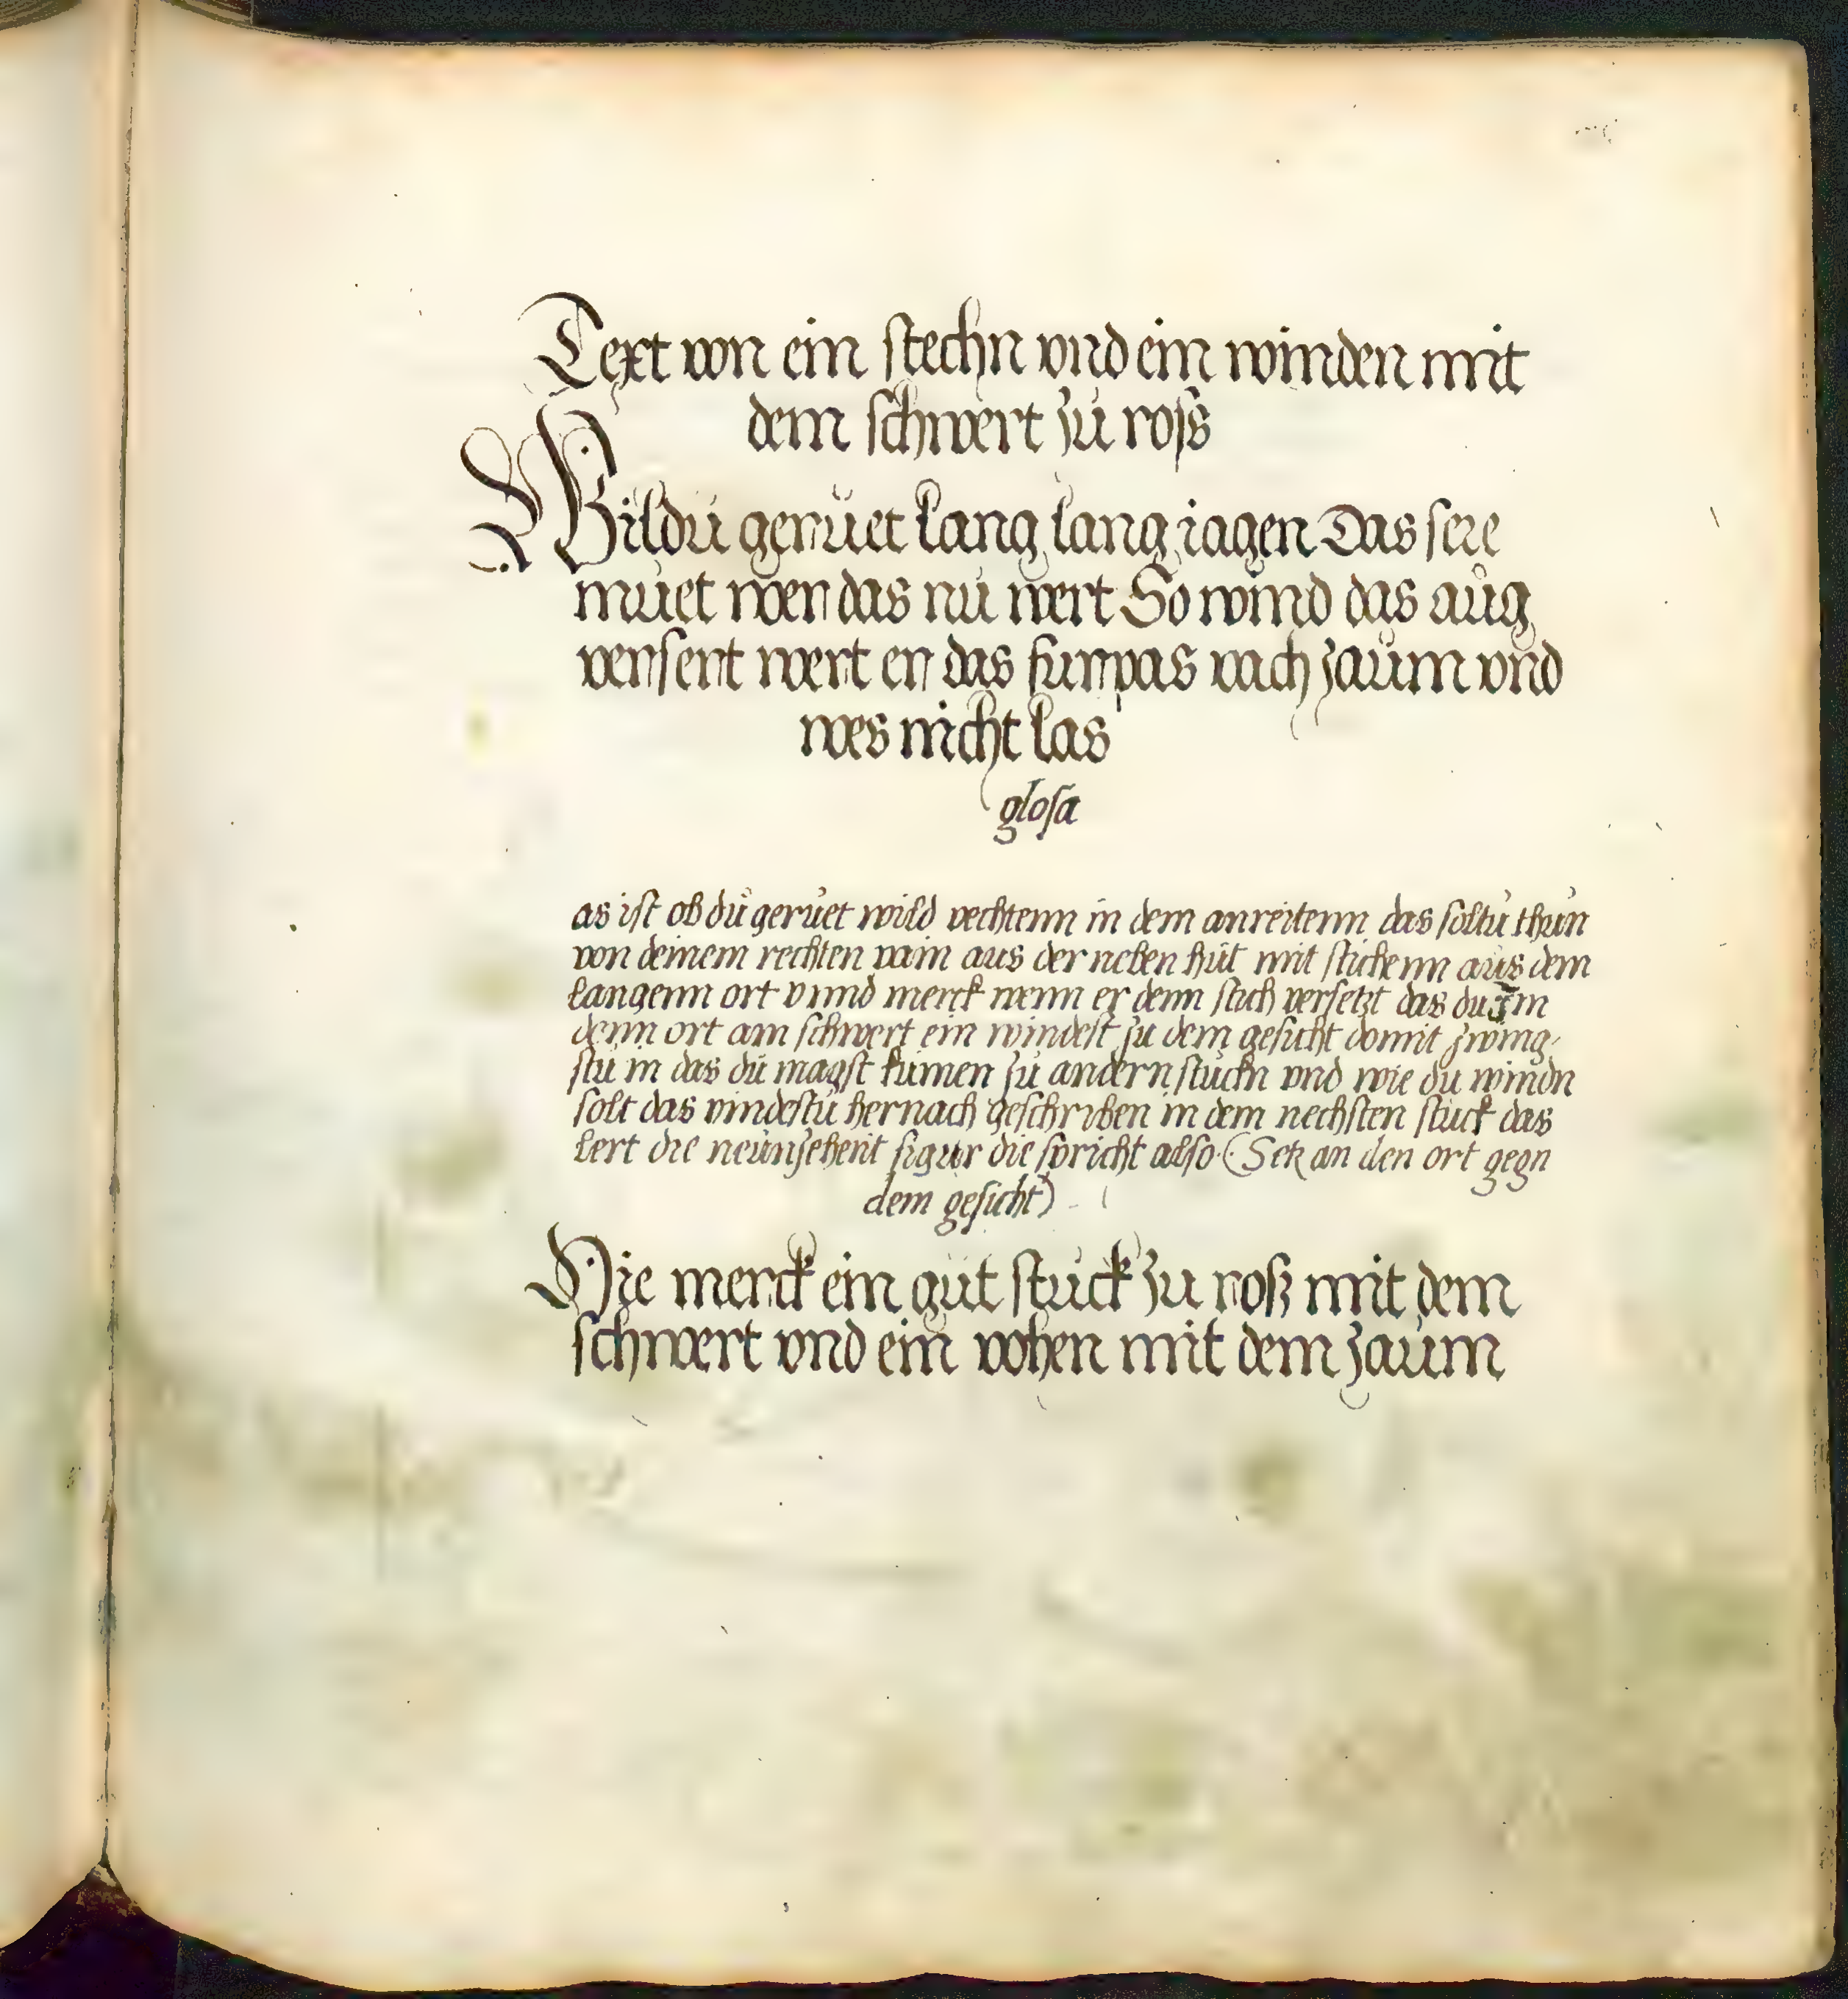 Text von ein stechn vnd ein winden mit
dem schwert zu roß
Wildu geruet lang lang iagen Das sere
muet wen das nu wert So wind das aug
versert wert er das furpas vach zaum vnd
wes nicht las
glosa
as ist ob du geruet wild vechtenn in dem anreitenn das soltu thun
von deinem rechten pain aus der neben hut mit stichenn aus dem
langenn ort vnnd merck wenn er denn stich versetzt das du im
denn ort am schwert ein windest zu dem gesicht domit zwing
stu in das du magst kumen zu andern stuckn vnd wie du windn
solt das vindestu hernach geschriben in dem nechsten stuck das
lert die neunzehent figur die spricht also (Setz an den ort gegn
dem gesicht)
Hie merck ein gut stuck zu roß mit dem
schwert vnd ein vohen mit dem zaum